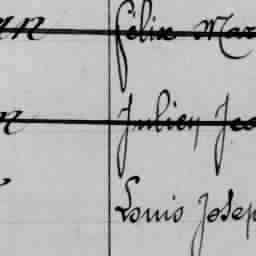 Félix Mar
Julien Jos
Louis Josep